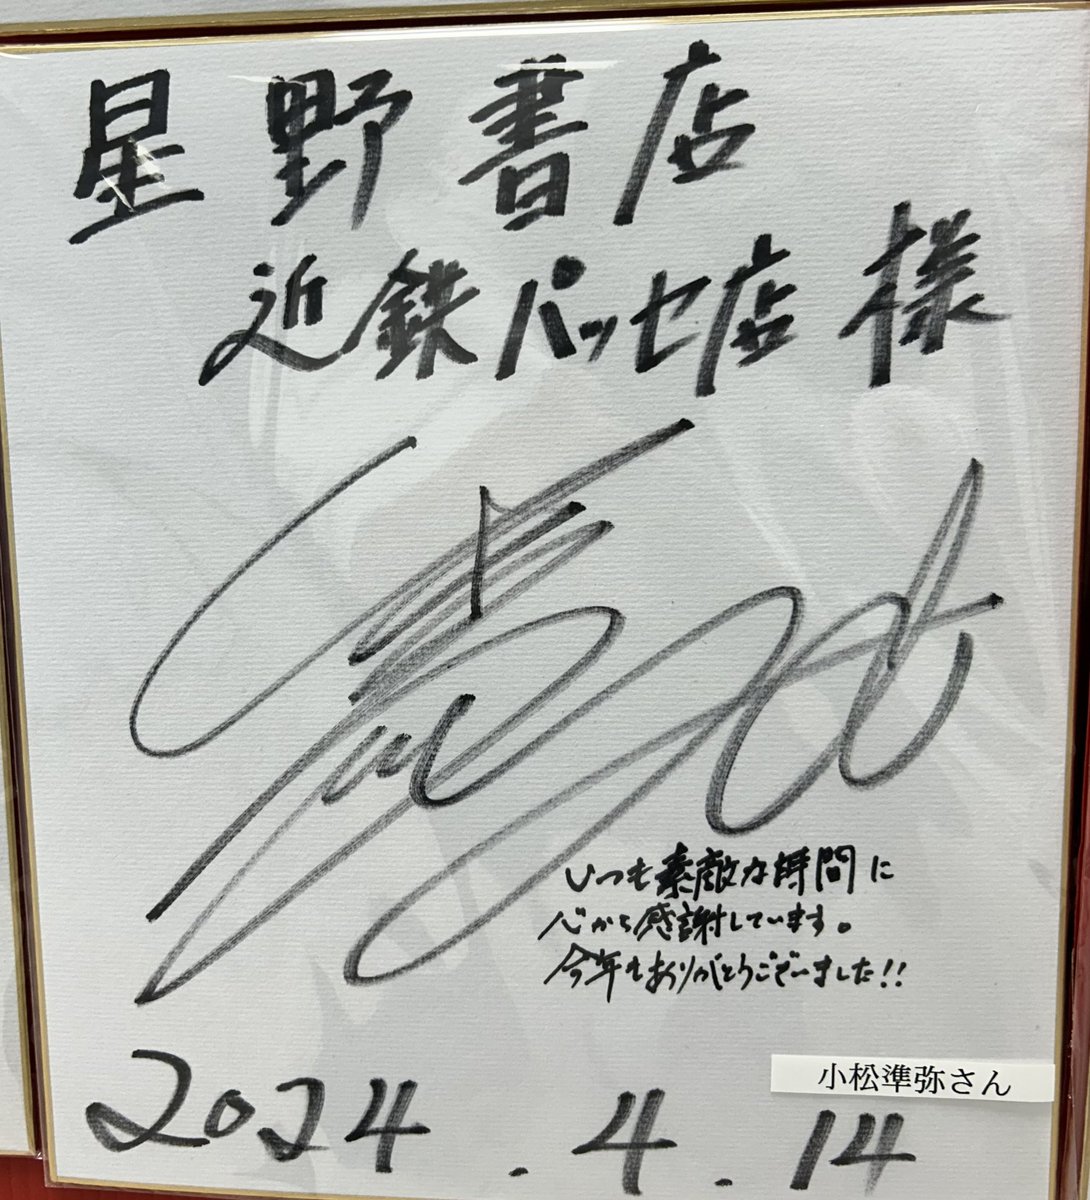 星野書店
近鉄パッセ店 様
いつも素敵な時間に
心から感謝しています。
今年もありがとうございました!!
小松準弥さん
2024.4.14